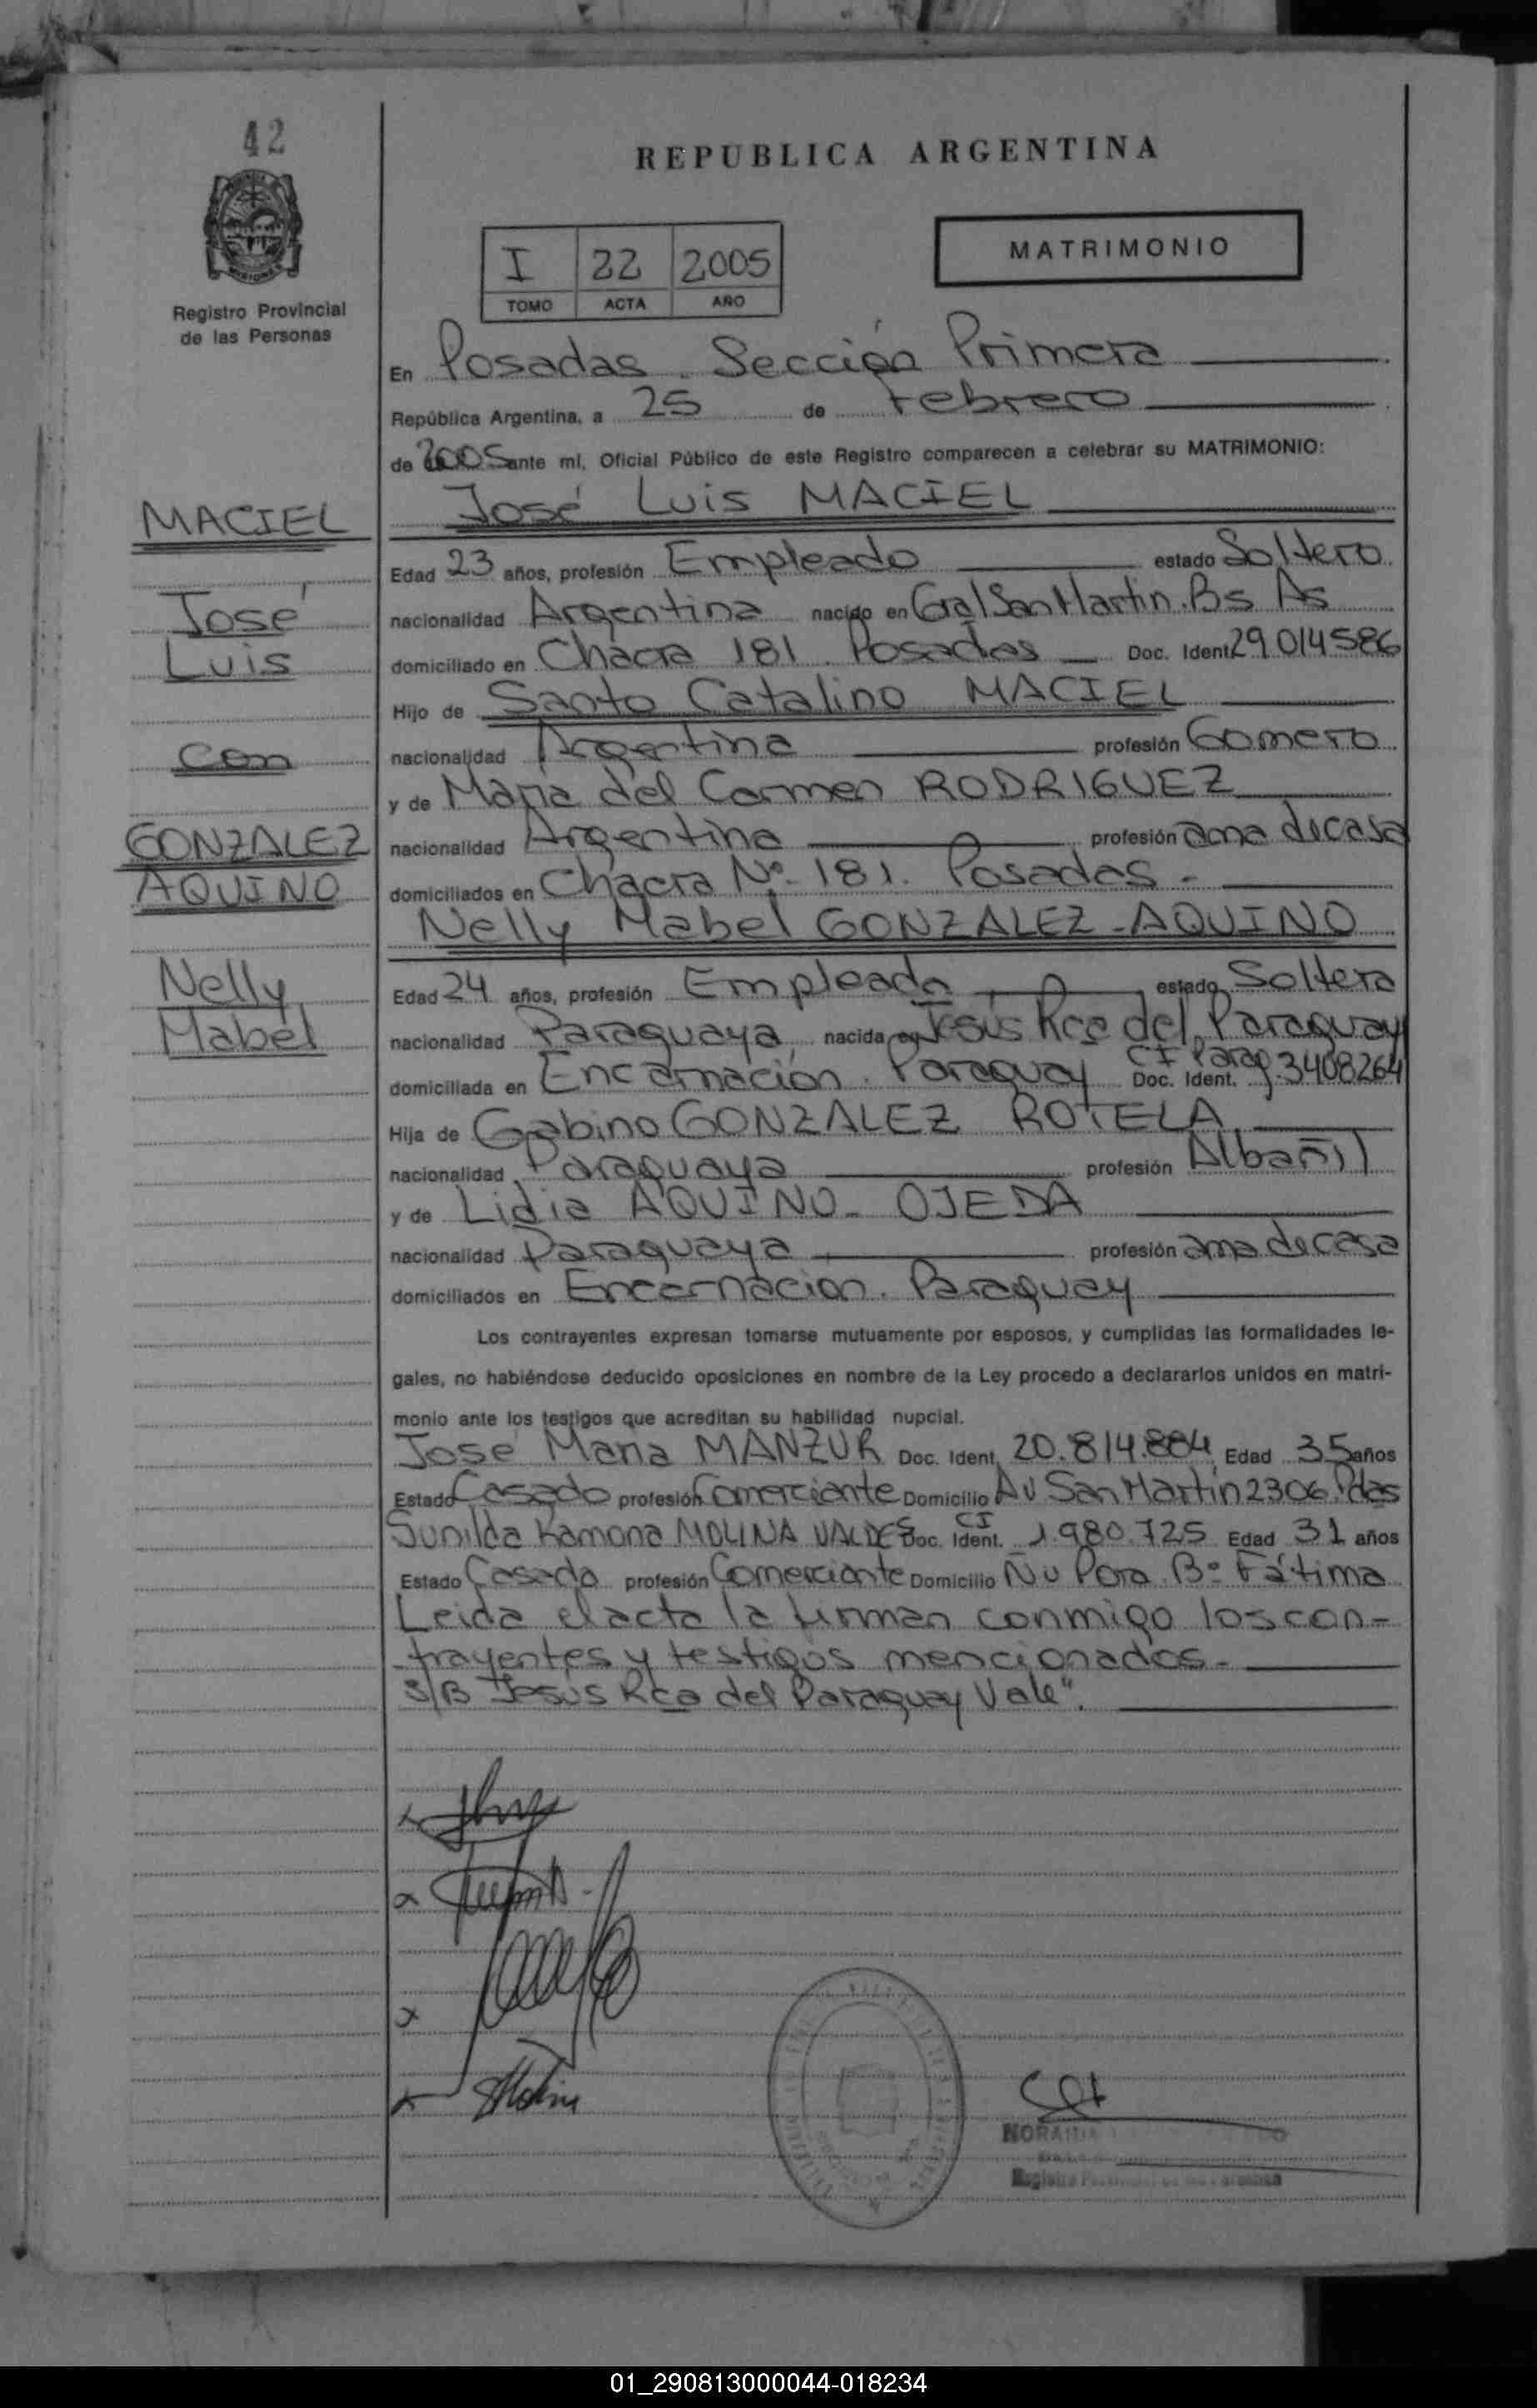 42
REPUBLICA ARGENTINA
I 22 2005
TOMO ACTA AÑO
MATRIMONIO
Registro Provincial
de las Personas
En Posadas. Sección Primera
República Argentina, a 25 de Febrero
de 2005 ante mí, Oficial Público de este Registro comparecen a celebrar su MATRIMONIO:
MACIEL
José
Luis
con
GONZALEZ
AQUINO
Nelly
Mabel
José Luis MACIEL
Edad 23 años, profesión Empleado estado Soltero
nacionalidad Argentina nacido en Gral San Martin. Bs As
domiciliado en Chacra 181. Posadas Doc. Ident. 29.014586
Hijo de Santo Catalino MACIEL
nacionalidad Argentina profesión Gomero
y de María del Carmen RODRIGUEZ
nacionalidad Argentina profesión ama de casa
domiciliados en Chacra Nº 181. Posadas -
Nelly Mabel GONZALEZ - AQUINO
Edad 24 años, profesión Empleada estado Soltera
nacionalidad Paraguaya, nacida en Jesús Rca del Paraguay
domiciliada en Encarnación. Paraguay Doc. Ident. CI Parag 3408264
Hija de Gabino GONZALEZ ROTELA
nacionalidad Paraguaya profesión Albañil
y de Lidia AQUINO - OJEDA
nacionalidad Paraguaya profesión ama de casa
domiciliados en Encarnacion. Paraguay
Los contrayentes expresan tomarse mutuamente por esposos, y cumplidas las formalidades le-
gales, no habiéndose deducido oposiciones en nombre de la Ley procedo a declararlos unidos en matri-
monio ante los testigos que acreditan su habilidad nupcial.
José Maria MANZUR Doc. Ident. 20.814.884 Edad 35 años
Estado Casado profesión Comerciante Domicilio Av San Martín 2306. Pdas
Sunilda Ramona MOLINA VALDES Doc. Ident. CI 1.980.725 Edad 31 años
Estado Casada profesión Comerciante Domicilio Ñu Pora. Bº Fátima
Leida el acta la firman conmigo los con-
trayentes y testigos mencionados -
S/B "Jesús Rca del Paraguay Vale".
01_290813000044-018234